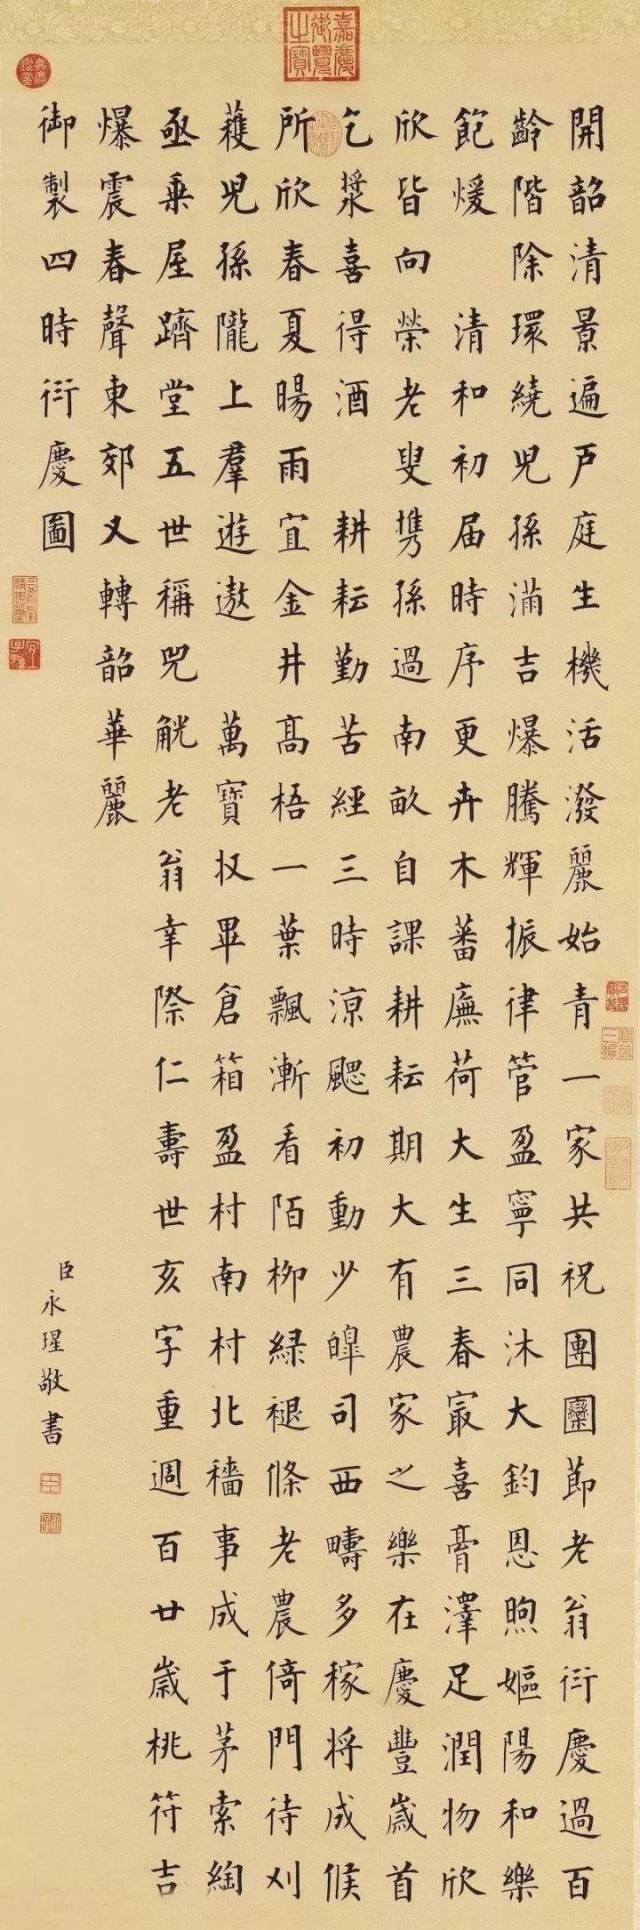 開韶清景遍戶庭生機活潑麗始青一家共祝團圞節老翁衍慶過百
齡階除環繞兒孫滿吉爆騰輝振律管盈寧同沐大鈞恩煦嫗陽和樂
飽煖 清和初届時序更卉木蕃廡荷大生三春冣喜膏澤足潤物欣
欣皆向榮老叟携孫過南畝自課耕耘期大有農家之樂在慶豐歲首
乞漿喜得酒 耕耘勤苦經三時涼颸初動少皞司西疇多稼將成候
所欣春夏暘雨宜金井高梧一葉飄漸看陌柳綠褪條老農倚門待刈
穫兒孫隴上羣遊遨 萬寶收畢倉箱盈村南村北穡事成于茅索綯
亟乗屋躋堂五世稱兕觥老翁幸際仁壽世亥字重週百廿歲桃符吉
爆震春聲東郊又轉韶華麗
御製四時衍慶圖
臣永瑆敬書
嘉慶御覽之寶